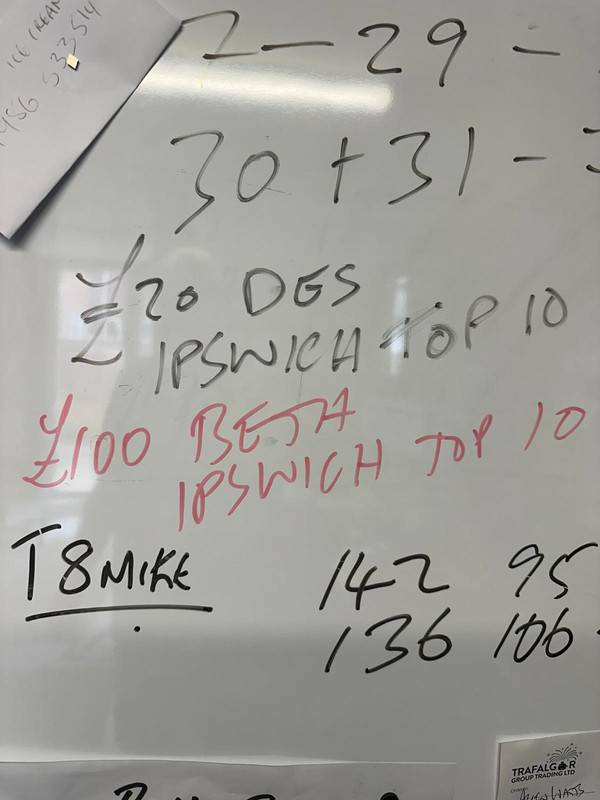 ICE CREAM
2 - 29 -
30 + 31 -
£20 DES
IPSWICH TOP 10
£100 BETH
IPSWICH TOP 10
T8 MIKE
142 95
136 106
TRAFALGAR
GROUP TRADING LTD